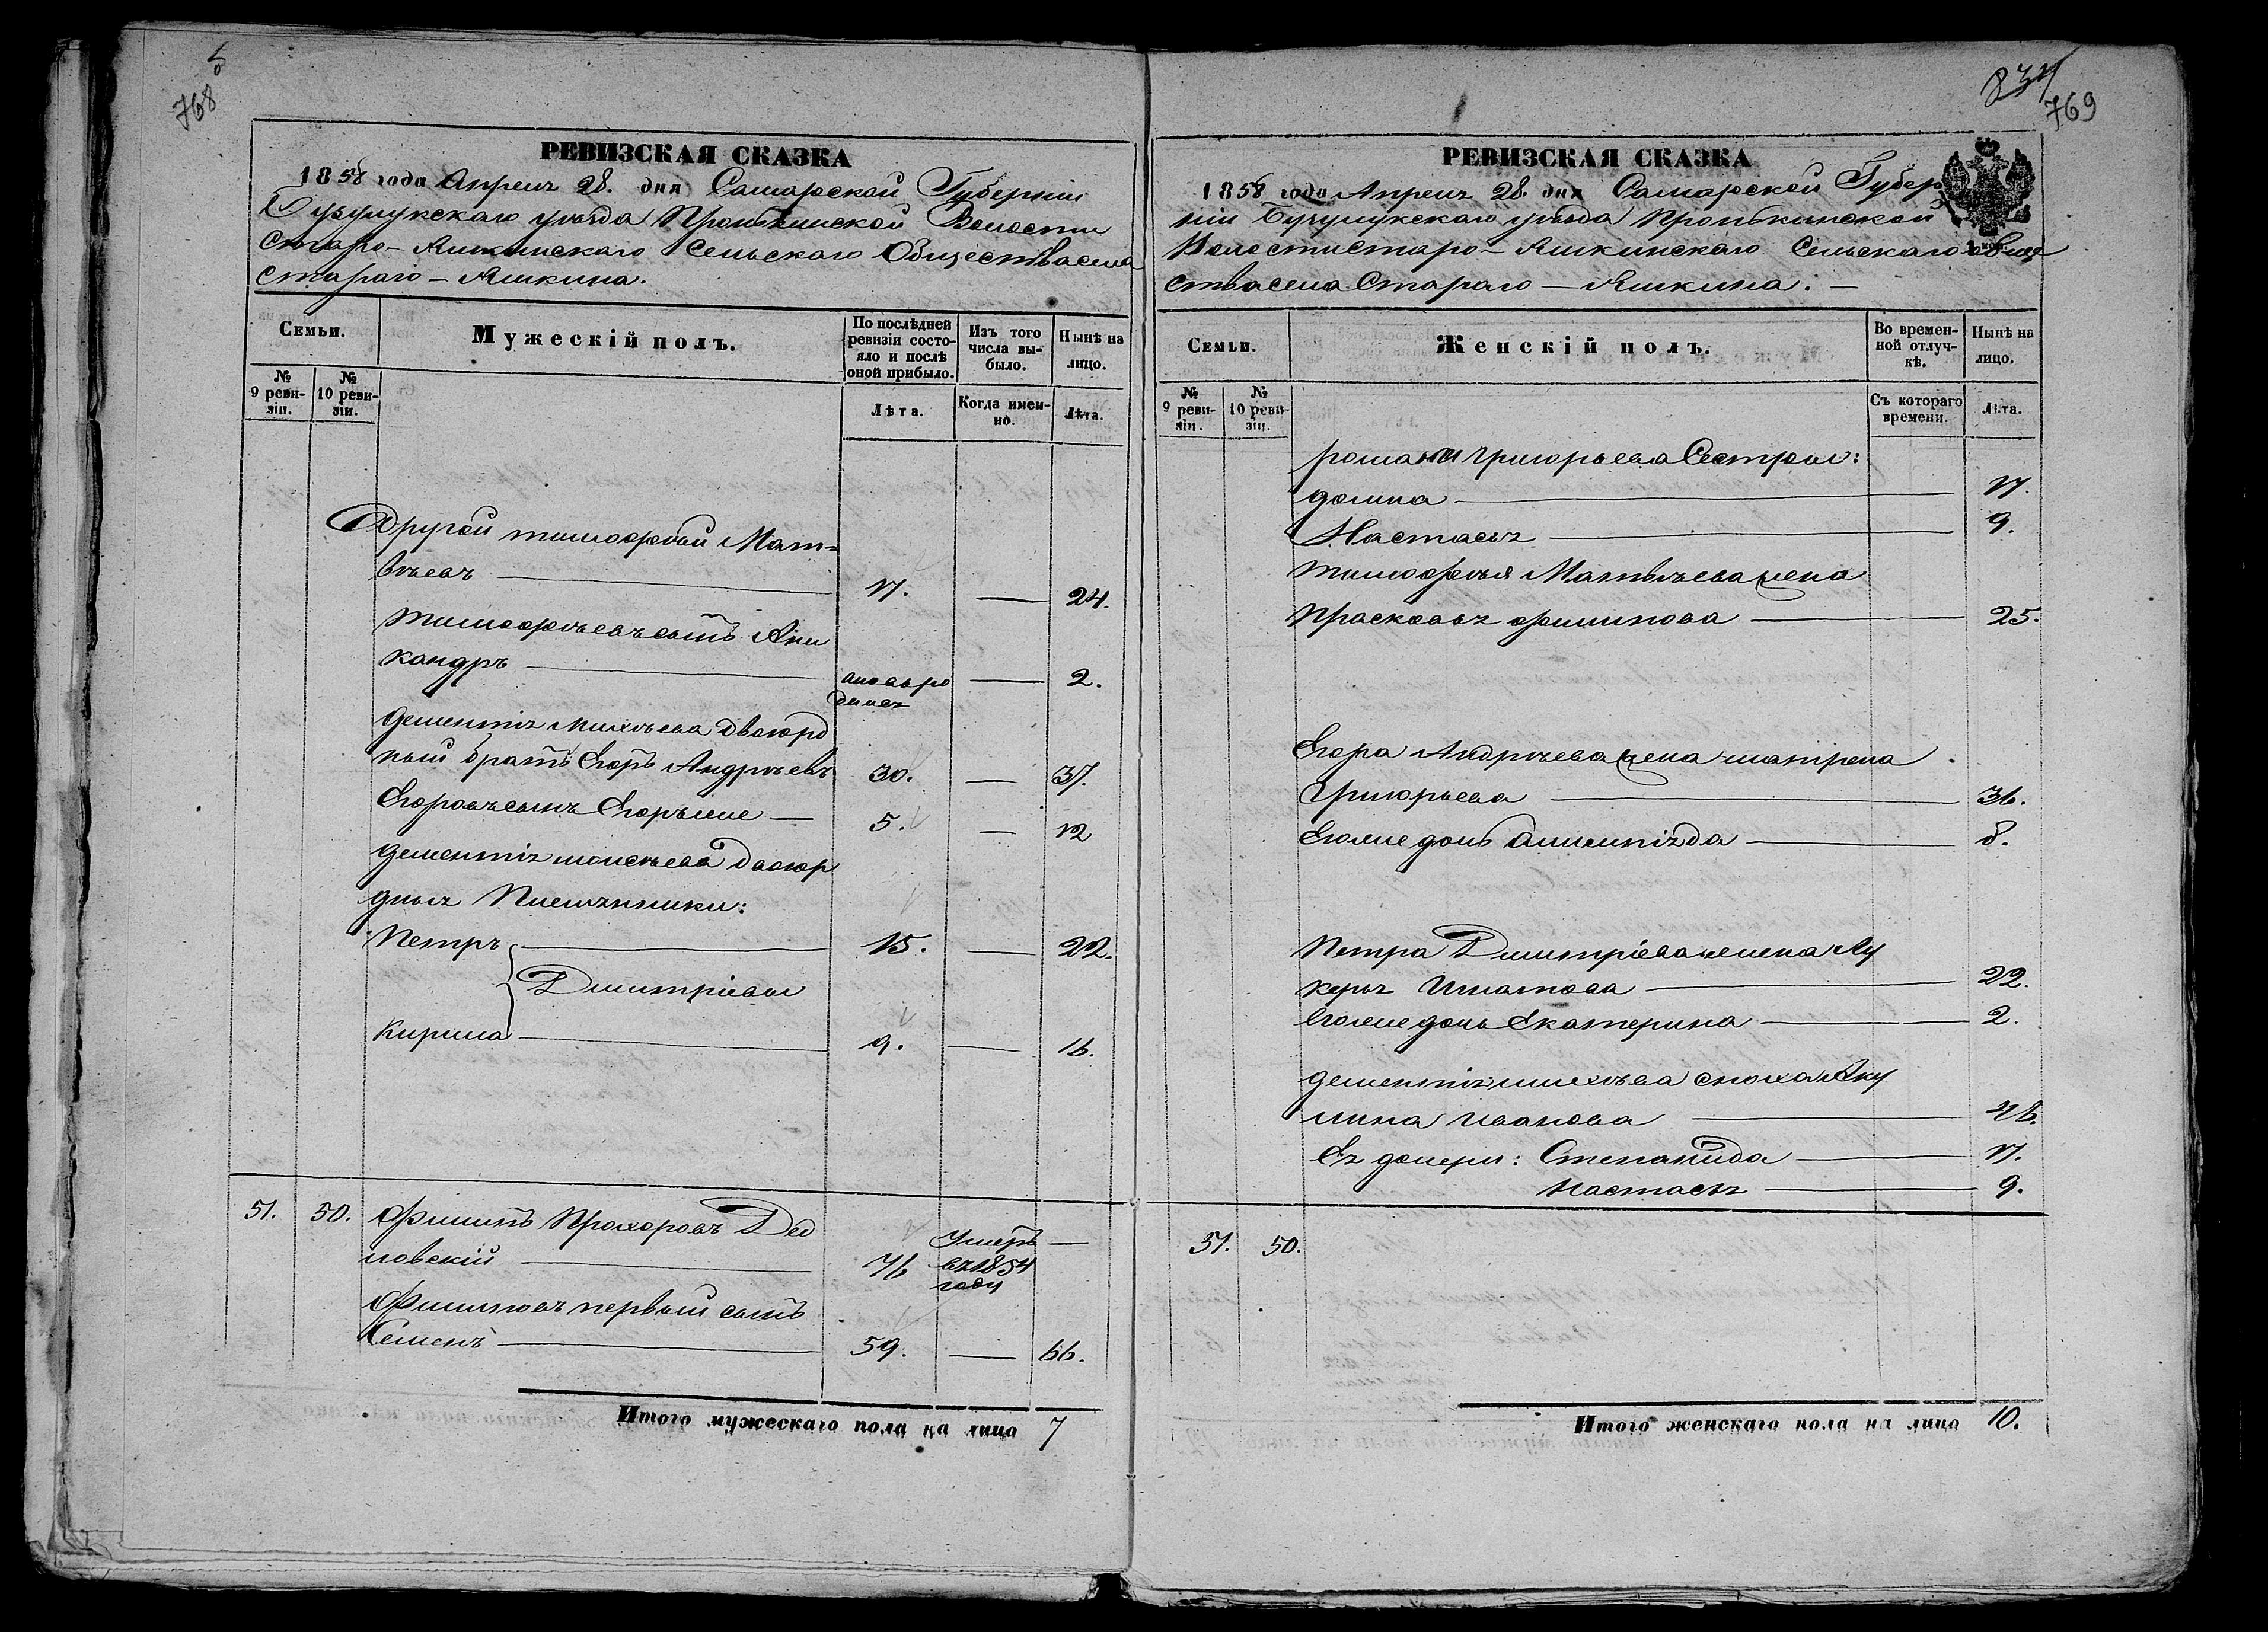 768
РЕВИЗСКАЯ СКАЗКА
1858 года Апреля 28. дня Самарской Губерніи
Бузулукскаго уѣзда Пронькинской Волости
Старо-Яшкинскаго Сельскаго Общества села
Стараго-Яшкина.
Семьи.
Мужескій полъ.
По послѣдней ревизіи состояло и послѣ оной прибыло.
Изъ того числа выбыло.
Нынѣ на лицо.
№ 9 ревизіи.
№ 10 ревизіи.
Лѣта.
Когда именно.
Лѣта.
Другой тимофѣй Мат-
вѣевъ 17. — 24.
тимофѣевъ сынъ Ани
кандръ вновь ро — 2.
дился
дементія Михѣева Двоюрд
ный братъ Егоръ Андрѣевъ 30. — 37.
Егоровъ сынъ Егоръ же — 5. — 12
дементія Двоюр
дныя Племянники:
Петръ 15. — 22.
Дмитріевы
Кирила 9. — 16.
51. 50. Филипъ Прохоровъ
76 Умеръ —
въ 1854
году
Филиповъ первый сынъ
Семенъ 59. — 66.
Итого мужескаго пола на лицо 7
769
РЕВИЗСКАЯ СКАЗКА
1858 года Апреля 28 дня Самарской Губер
ніи Бузулукскаго уѣзда Пронькинской
Волости Старо-Яшкинскаго Сельскаго обще
ства села Стараго — Яшкина. —
Семьи.
Женскій полъ.
Во временной отлучкѣ.
Нынѣ на лицо.
№ 9 ревизіи.
№ 10 ревизіи.
Съ котораго времени.
Лѣта.
романа григорьева Сестры:
домна — 17.
Настасья — 9.
тимофѣя Матвѣева жена
прасковья филипова — 25.
Егора Андрѣева жена матрена
григорьева — 36.
Его же дочь — 8.
Петра Дмитріева жена Лу
керья Игнатова — 22.
Его же дочь Екатерина — 2.
дементія михѣева сноха Аку
лина иванова — 46.
Ея дочери: Степанида — 17.
Настасья — 9.
51. 50.
Итого женскаго пола на лицо 10.